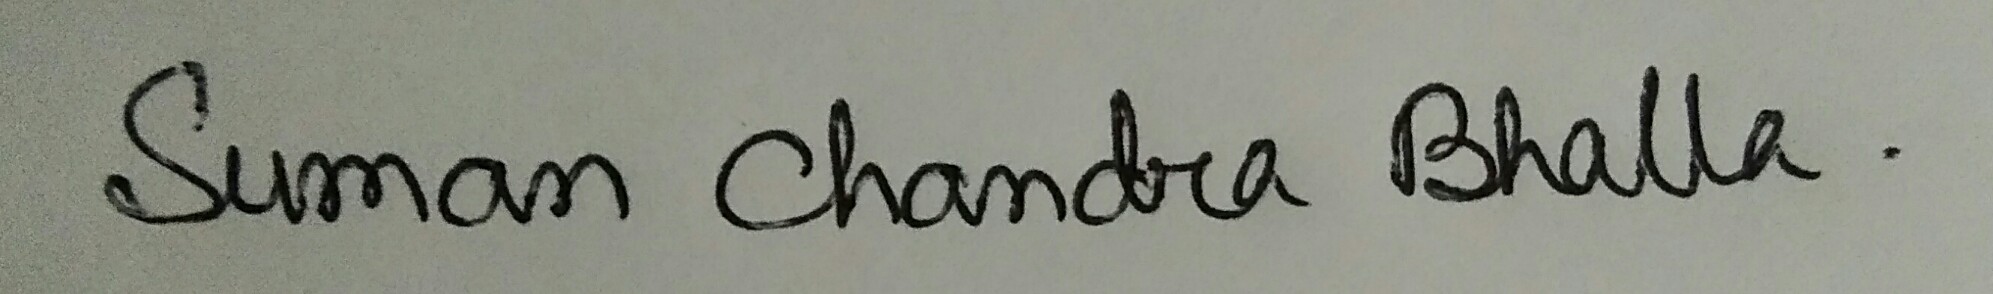 Suman Chandra Bhalla.